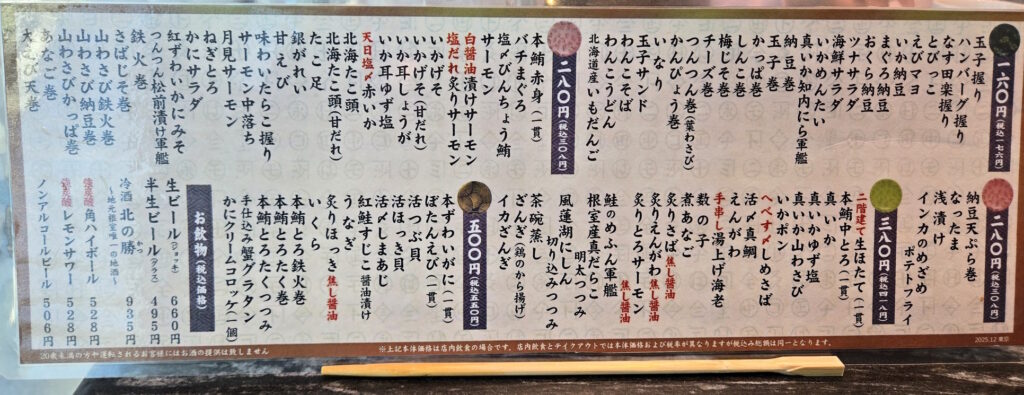 一六〇円(税込一七六円)
玉子握り
ハンバーグ握り
なす田楽握り
とびっこ
えびマヨ
いか納豆
まぐろ納豆
おくら納豆
ツナサラダ
海鮮サラダ
いかめんたい
真いか知内にら軍艦
納豆巻
玉子巻
かっぱ巻
しんこ巻
梅じそ巻
チーズ巻
つんつん巻(葉わさび)
かんぴょう巻
いなり
玉子サンド
わんこそば
わんこうどん
北海道産いももだんご
二八〇円(税込三〇八円)
本鮪赤身(一貫)
バチまぐろ
塩〆びんちょう鮪
サーモン
白醤油漬けサーモン
塩だれ炙りサーモン
いかげそ
いかげそ(甘だれ)
いか耳しょうが
いか耳ゆず塩
天日塩〆赤いか
北海たこ頭
北海たこ頭(甘だれ)
たこ足
銀がれい
甘えび
味わいたらこ握り
サーモン中落ち
月見サーモン
ねぎとろ
かにサラダ
紅ずわいかにみそ
つんつん松前漬け軍艦
鉄火巻
さばじそ巻
山わさび鉄火巻
山わさび納豆巻
山わさびかっぱ巻
あなご巻
大えび天巻
二八〇円(税込三〇八円)
納豆天ぷら巻
なったま
浅漬け
インカのめざめ
ポテトフライ
三八〇円(税込四一八円)
二階建て生ほたて(一貫)
本鮪中とろ(一貫)
真いか
真いかゆず塩
真いか山わさび
いかポン
へべす〆しめさば
活〆真鯛
えんがわ
手串し湯上げ海老
数の子
煮あなご
炙りさば 焦し醤油
炙りえんがわ 焦し醤油
炙りとろサーモン 焦し醤油
鮭のめふん軍艦
根室産真だらこ
明太つつみ
風蓮湖にしん
切り込みつつみ
茶碗蒸し
ざんぎ(鶏のから揚げ)
イカざんぎ
五〇〇円(税込五五〇円)
本ずわいがに(一貫)
ぼたんえび(一貫)
活つぶ貝
活ほっき貝
活〆しまあじ
紅鮭すじこ醤油漬け
うなぎ
炙りほっき 焦し醤油
いくら
本鮪とろ鉄火巻
本鮪とろたく巻
本鮪とろたくつつみ
手仕込み蟹グラタン
かにクリームコロッケ(一個)
お飲物(税込価格)
生ビール(ジョッキ) 660円
半生ビール(グラス) 495円
冷酒 北の勝 935円
~地元根室唯一の地酒~
強炭酸 角ハイボール 528円
強炭酸 レモンサワー 528円
ノンアルコールビール 506円
20歳未満の方や運転されるお客様にはお酒の提供は致しません
※上記本体価格は店内飲食の場合です。店内飲食とテイクアウトでは本体価格および税率が異なりますが税込み総額は同一となります。
2025.12 東京